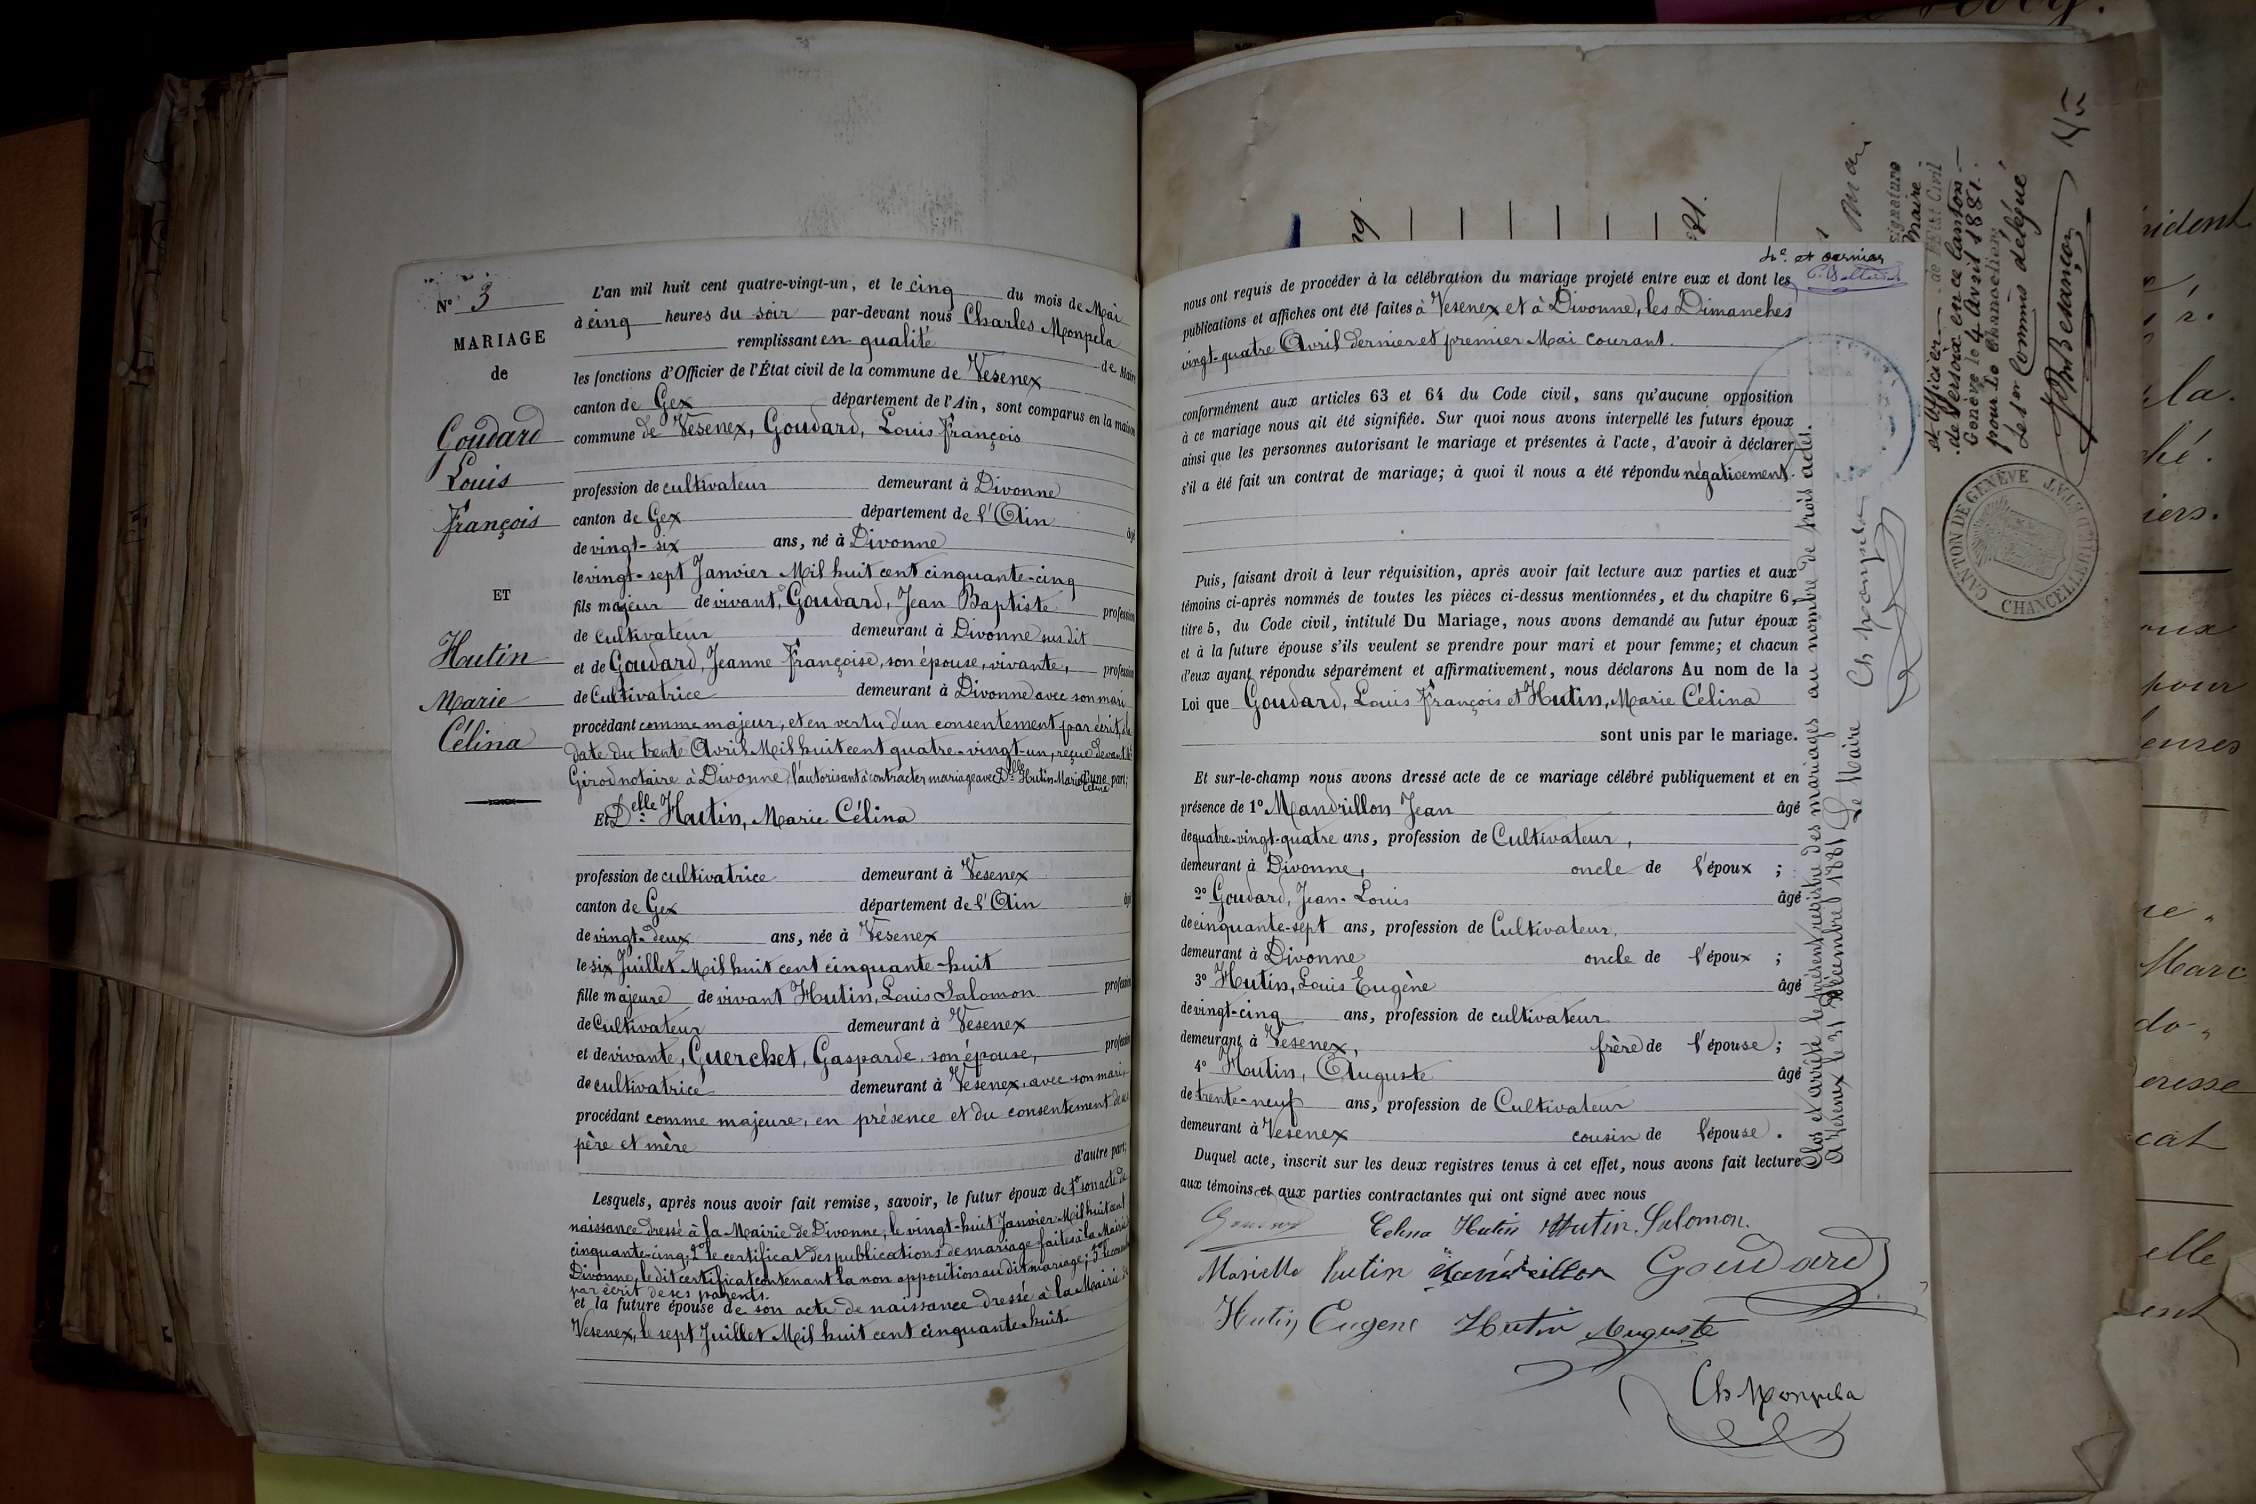 N° 3
MARIAGE
de
Goudard
Louis
François
ET
Hutin
Marie
Célina
L'an mil huit cent quatre-vingt-un, et le cinq du mois de Mai
à cinq heures du soir par-devant nous Charles Monpela
remplissant en qualité de Maire
les fonctions d'Officier de l'État civil de la commune de Vesenex
canton de Gex département de l'Ain, sont comparus en la maison
commune de Vesenex, Goudard, Louis François
profession de cultivateur demeurant à Divonne
canton de Gex département de l'Ain âgé
de vingt-six ans, né à Divonne
le vingt-sept Janvier Mil huit cent cinquante-cinq
fils majeur de vivant, Goudard, Jean Baptiste profession
de Cultivateur demeurant à Divonne susdit
et de Goudard, Jeanne Françoise, son épouse, vivante, profession
de Cultivatrice demeurant à Divonne avec son mari
procédant comme majeur, et en vertu d'un consentement par écrit, à la
date du trente Avril Mil huit cent quatre-vingt-un, reçue devant Me
Girod notaire à Divonne, l'autorisant à contracter mariage avec Delle Hutin Marie Célina d'une part;
Et Delle Hutin, Marie Célina
profession de cultivatrice demeurant à Vesenex
canton de Gex département de l'Ain âgé
de vingt-deux ans, née à Vesenex
le six Juillet Mil huit cent cinquante-huit
fille majeure de vivant Hutin, Louis Salomon profession
de Cultivateur demeurant à Vesenex
et de vivante, Guerchet, Gasparde, son épouse, profession
de cultivatrice demeurant à Vesenex, avec son mari,
procédant comme majeure, en présence et du consentement de ses
père et mère
d'autre part;
Lesquels, après nous avoir fait remise, savoir, le futur époux de 1° son acte de
naissance dressé à la Mairie de Divonne, le vingt-huit Janvier Mil huit cent
cinquante-cinq; 2° le certificat des publications de mariage faites à la Mairie
Divonne, le dit certificat contenant la non opposition au dit mariage; 3°
par écrit de ses parents.
et la future épouse de son acte de naissance dressé à la Mairie de
Vesenex, le sept Juillet Mil huit cent cinquante-huit.
4e et dernier
nous ont requis de procéder à la célébration du mariage projeté entre eux et dont les
publications et affiches ont été faites à Vesenex et à Divonne, les Dimanches
vingt-quatre Avril dernier et premier Mai courant.
conformément aux articles 63 et 64 du Code civil, sans qu'aucune opposition
à ce mariage nous ait été signifiée. Sur quoi nous avons interpellé les futurs époux
ainsi que les personnes autorisant le mariage et présentes à l'acte, d'avoir à déclarer
s'il a été fait un contrat de mariage; à quoi il nous a été répondu négativement.
Puis, faisant droit à leur réquisition, après avoir fait lecture aux parties et aux
témoins ci-après nommés de toutes les pièces ci-dessus mentionnées, et du chapitre 6,
titre 5, du Code civil, intitulé Du Mariage, nous avons demandé au futur époux
et à la future épouse s'ils veulent se prendre pour mari et pour femme; et chacun
d'eux ayant répondu séparément et affirmativement, nous déclarons Au nom de la
Loi que Goudard, Louis François et Hutin, Marie Célina
sont unis par le mariage.
Et sur-le-champ nous avons dressé acte de ce mariage célébré publiquement et en
présence de 1° Mandrillon Jean âgé
de quatre-vingt-quatre ans, profession de Cultivateur,
demeurant à Divonne, oncle de l'époux ;
2° Goudard, Jean-Louis âgé
de cinquante-sept ans, profession de Cultivateur,
demeurant à Divonne oncle de l'époux ;
3° Hutin, Louis Eugène âgé
de vingt-cinq ans, profession de cultivateur
demeurant à Vesenex, frère de l'épouse ;
4° Hutin, Auguste âgé
de trente-neuf ans, profession de Cultivateur
demeurant à Vesenex cousin de l'épouse .
Duquel acte, inscrit sur les deux registres tenus à cet effet, nous avons fait lecture
aux témoins et aux parties contractantes qui ont signé avec nous
Goudard Celina Hutin Hutin Salomon.
Mariette hutin Mandrillon Goudard
Hutin Eugene Hutin Auguste
Ch Monpela
Clos et arrêté le présent registre des mariages au nombre de trois actes.
A Vesenex le 31 Décembre 1881
Le Maire Ch Monpela
signature
Maire
et officier de l'Etat Civil
de Versoix en ce canton
Genève le 4 Avril 1881.
pour Le Chancelier
Le Commis délégué
CANTON DE GENÈVE
CHANCELLERIE D'ÉTAT